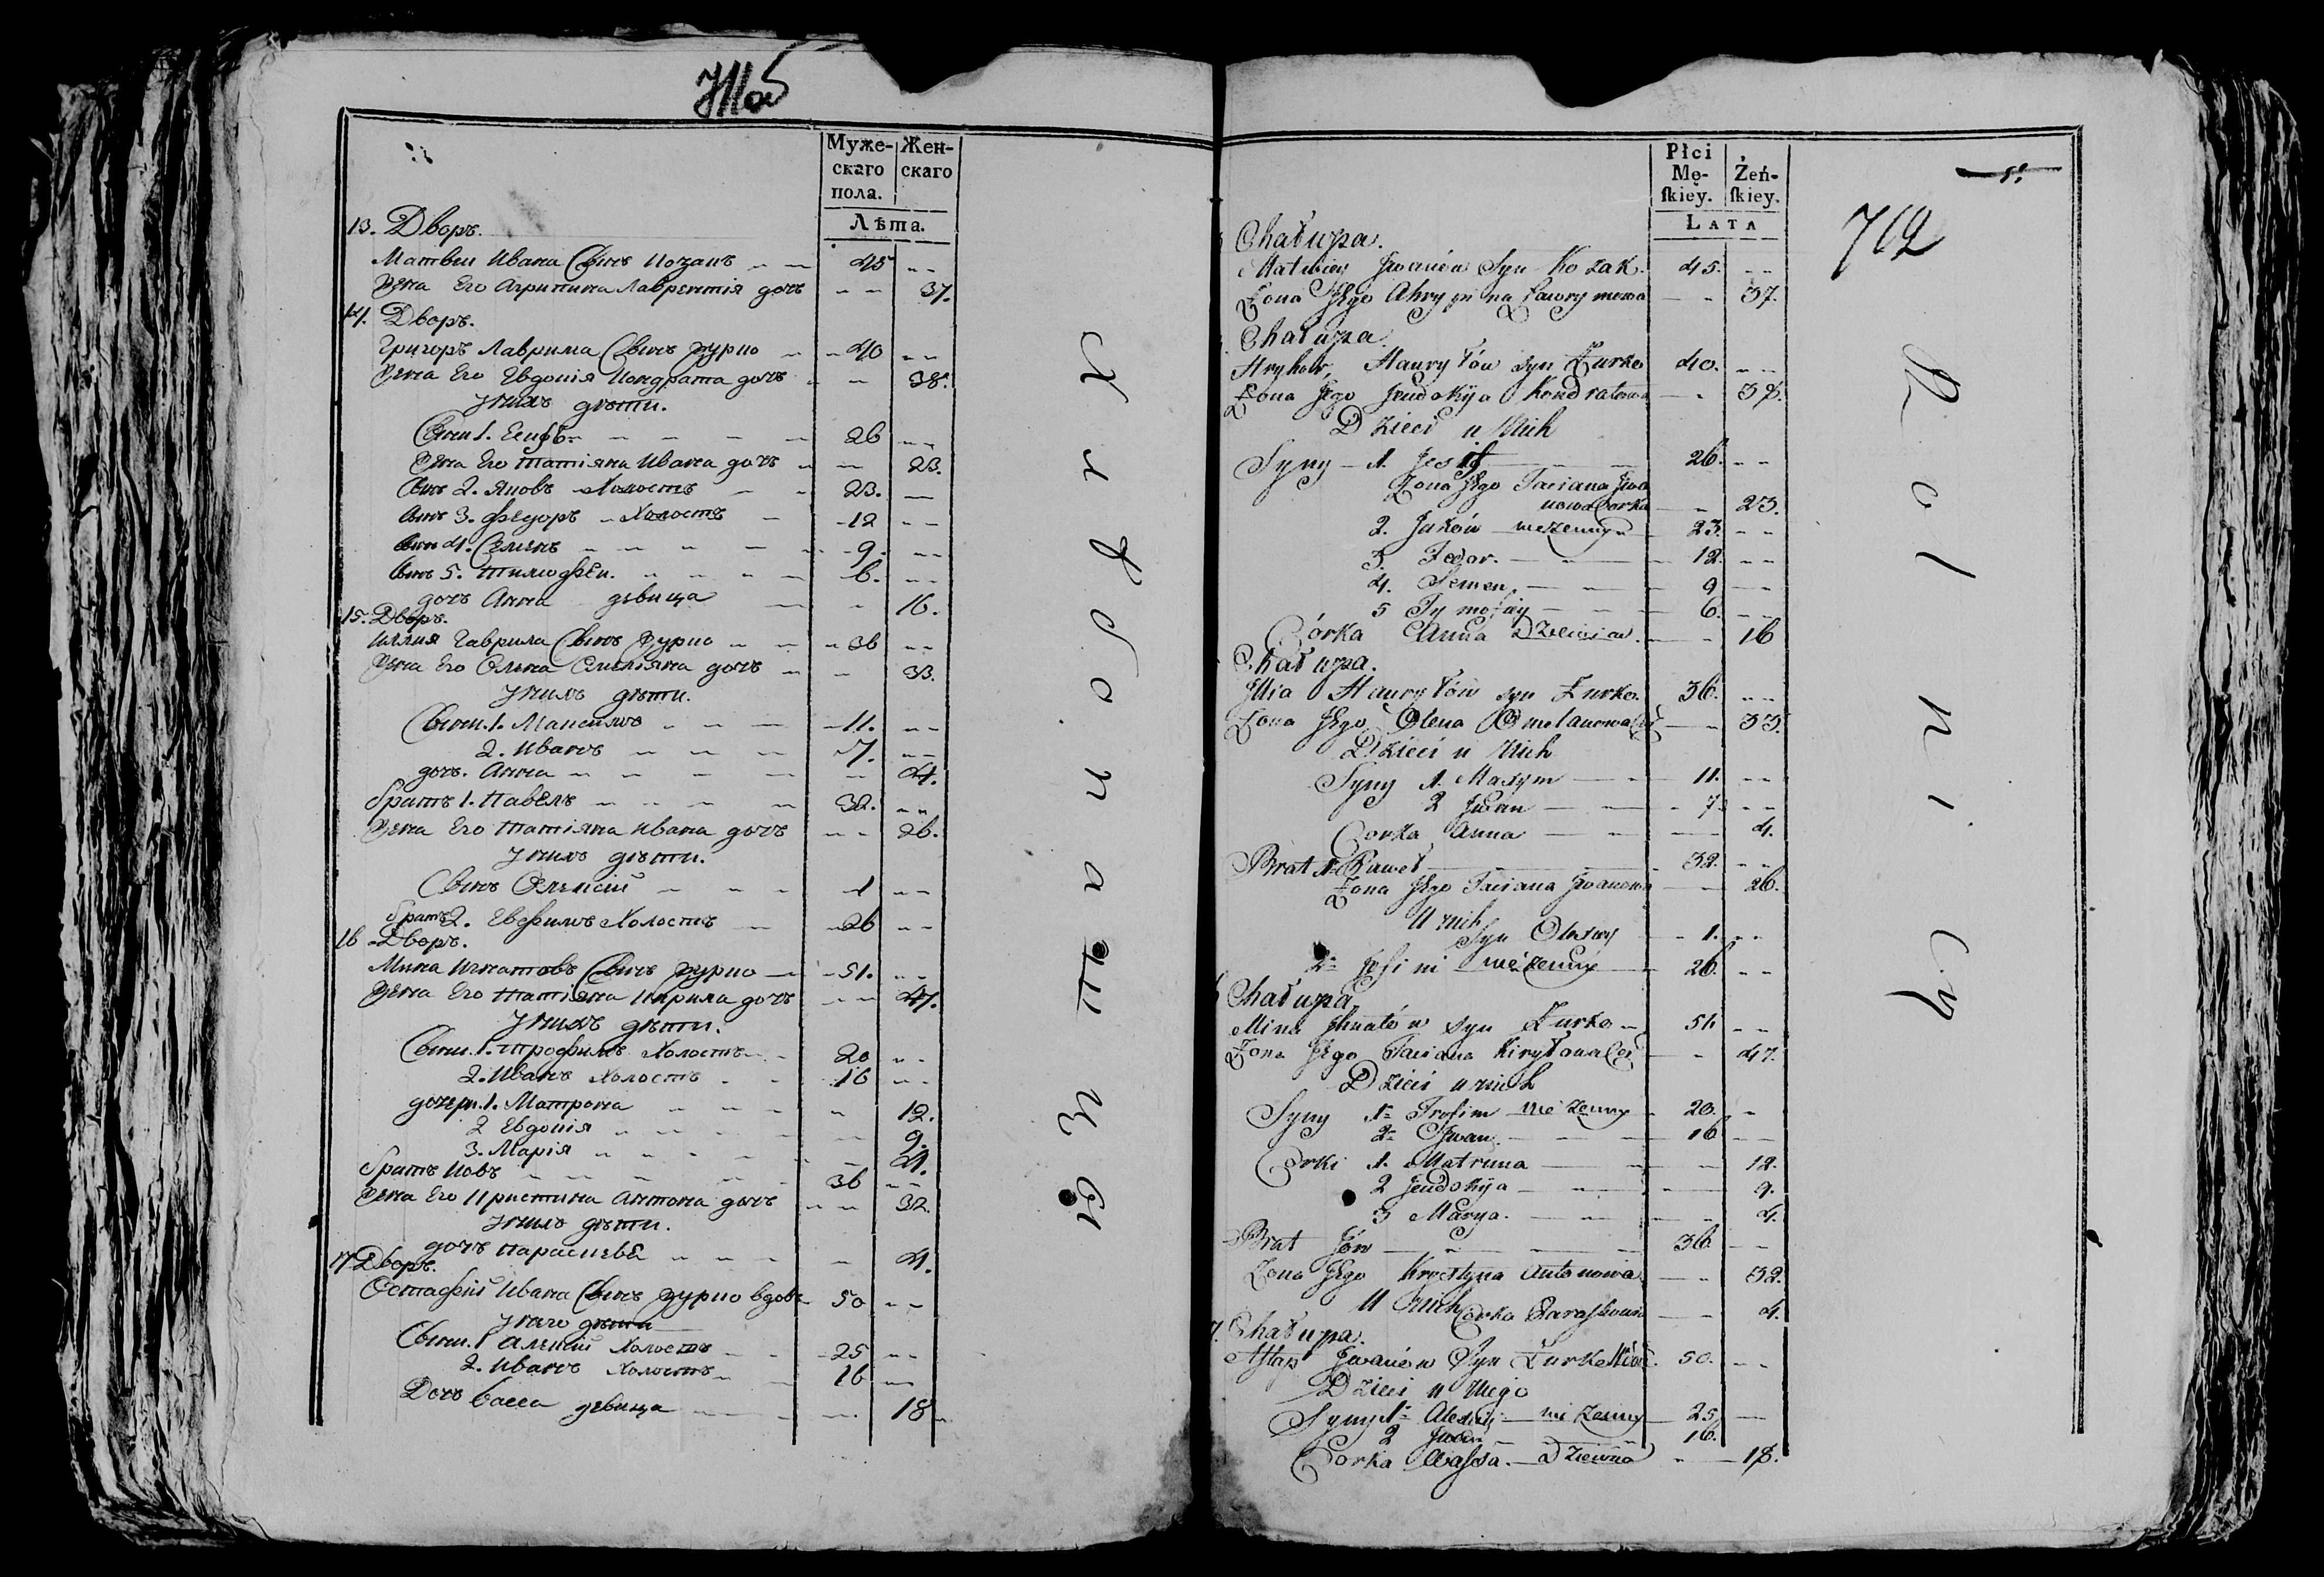 Муже-
скаго
пола.
Жен-
скаго
Лѣта.
13. Дворъ.
Матвеи Ивана Сынъ Козакъ 45
Жена Его Агрипина Лаврентія дочь 37.
14. Дворъ.
Григоръ Гаврила Сынъ Журко 40
Жена Его Евдокія Кондрата дочь 38.
У нихъ дѣти.
Сыны 1. Есифъ 26
Жена Его Татіяна Ивана дочь 23.
Сынъ 2. Яковъ Холостъ 23.
Сынъ 3. Федоръ Холостъ 12
Сынъ 4. Семенъ 9.
Сынъ 5. Тимофеи. 6.
дочь Анна девица 16.
15. Дворъ.
Иллия Гаврила Сынъ Журко 36
Жена Его Олена Омеліяна дочь 33.
У нихъ дѣти.
Сыны. 1. Максимъ 11.
2. Иванъ 7.
дочь. Анна 4.
братъ 1. Павелъ 32.
Жена Его Татіяна Ивана дочь 26.
У нихъ дѣти.
Сынъ Олексій 1
братъ 2. Евфимъ Холостъ 26
16 Дворъ.
Мина Игнатовъ Сынъ Журко 51.
Жена Его Татіяна Кирила дочь 47.
У нихъ дѣти.
Сыны. 1. Трофимъ Холостъ 20
2. Иванъ Холостъ 16
дочери. 1. Матрона 12.
2 Евдокія 9.
3. Марія 4.
братъ Іовъ 36
Жена Его Кристина Антона дочь 32.
У нихъ дѣти.
дочь Параскева 4.
17 Дворъ.
Остафій Ивана Сынъ Журко вдовъ 50
У него дѣти
Сыны. 1 Алексій Холостъ 25
2. Иванъ Холостъ 16
Дочь Васса девица 18
Płci
Mę-
ſkiey.
Żeń-
ſkiey.
LATA
712
Chałupa.
Matwiey Jwanów Syn Kozak. 45.
Żona Jego Ahrypina Ławrynowa 37.
Chałupa.
Hryhor, Hauryłów syn Żurko 40.
Żona Jego Jeudokija Kondratowa 38.
Dzieci u Nich
Syny 1. Jesif 26.
Żona Jego Taciana Jwa
nowa Corka 23.
2. Jaków nieżenny 23.
3. Fedor. 12.
4. Semen, 9
5 Tymofiey 6.
Córka Anna Dziewica. 16
Chałupa.
Jllia Hauryłów syn Żurko. 36.
Żona Jego Olena Omelanowa 33.
Dzieci u Nich
Syny 1. Maxym 11.
2 Jwan 7.
Corka Anna 4.
Brat 1. Paweł 32.
Żona Jego Taciana Jwanowa 26.
U nich
Syn Olexiy 1.
2. Jefim nieżenny 26.
Chałupa.
Mina Jhnatów syn Żurko 51
Żona Jego Taciana Kiryłowa 47.
Dzieci u nich
Syny 1. Trofim nieżenny 20.
2. Jwan. 16
Corki 1. Matruna 12.
2 Jeudokija 9.
3 Marya. 4.
Brat Jów 36
Żona Jego Krystyna Antonowa 32.
U nich Corka Paraſkowia 4.
Chałupa.
Aſtap Jwanów Syn Żurko 50.
Dzieci u Niego
Syny 1. Alexiy nieżenny 25
2 Jwan 16.
Corka Waſsa. Dziewica 18.